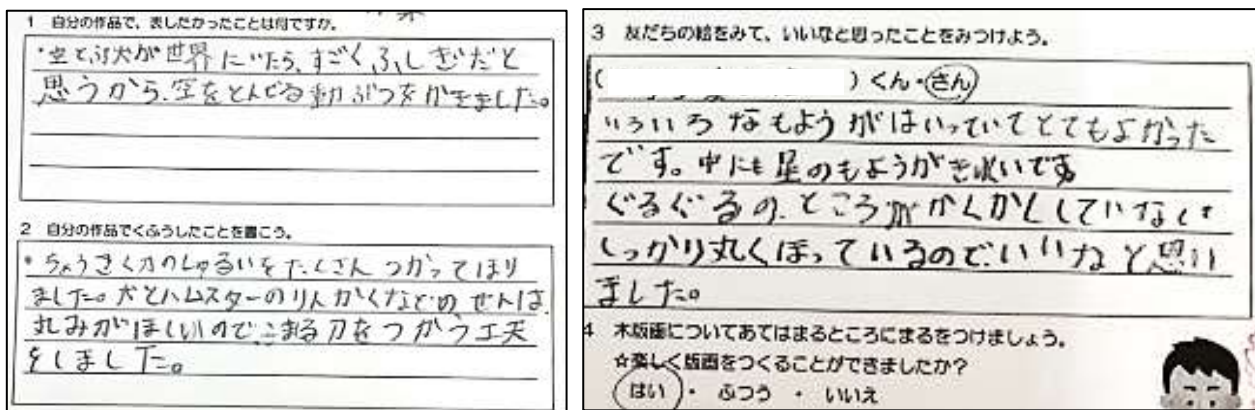 1 自分の作品で、表したかったことは何ですか。
・空とぶ犬が世界にいたら、すごくふしぎだと
思うから、空をとんでる動ぶつをかきました。
2 自分の作品でくふうしたことを書こう。
・ちょうきく刀のしゅるいをたくさんつかってほり
ました。犬とハムスターのりんかくなどのせんは、
丸みがほしいので、こまる刀をつかう工夫
をしました。
3 友だちの絵をみて、いいなと思ったことをみつけよう。
( ) くん・さん
いろいろなもようがはいっていてとてもよかった
です。中にも星のもようがきれいです
ぐるぐるの、ところがかくかくしていなく
しっかり丸くほっているので、いいなと思い
ました。
4 木版画についてあてはまるところにまるをつけましょう。
☆楽しく版画をつくることができましたか?
はい ・ ふつう ・ いいえ